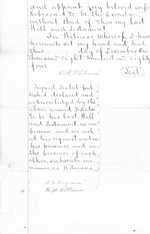 and appoint my beloved wife
Rebecca to be the Execu-
without Bond of this my last
Will and Testament.
In Witness whereof, I have
hereunto set my hand and seal
this day of December
thousand eight hundred and eighty
four
(Seal)
Signed Sealed pub-
lished declared and
acknowledged by the
above named
to be his last Will
and Testament in our
presence and we each
at his request and in
his presence and in
the presence of each
other, subscribe our
names as Witnesses